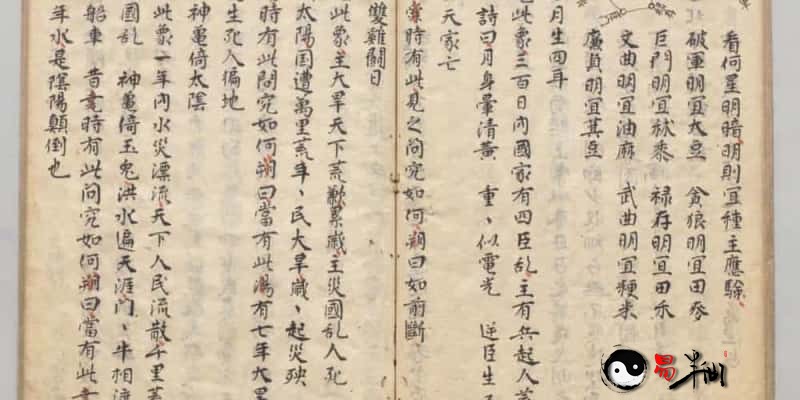 看何星明暗明則宜種主應驗
破軍明宜大豆　貪狼明宜田麥
巨門明宜秫黍　禄存明宜田禾
文曲明宜油麻　武曲明宜粳米
廉貞明宜其豆
月生四耳
此象三百日內國家有四臣乱主有兵起人
詩曰月身暈清黃　重々似電光　逆臣生
天家亡
堂時有此見之问究如何朔曰如前斷
雙雞鬭日
此象主大旱天下荒歉累歲主災國乱人死
太陽国遭萬里荒年、民大旱歲、起災殃
時有此問究如何朔曰當有此湯有七年大旱
生死人徧地
神亀倚太陰
此象一年內水災漂流天下人民流散千里
國乱　神亀倚玉兔洪水遍天涯門、牛相渡
船車　昔堯時有此问究如何朔曰當有此
年水是陰陽顛倒也
易半仙